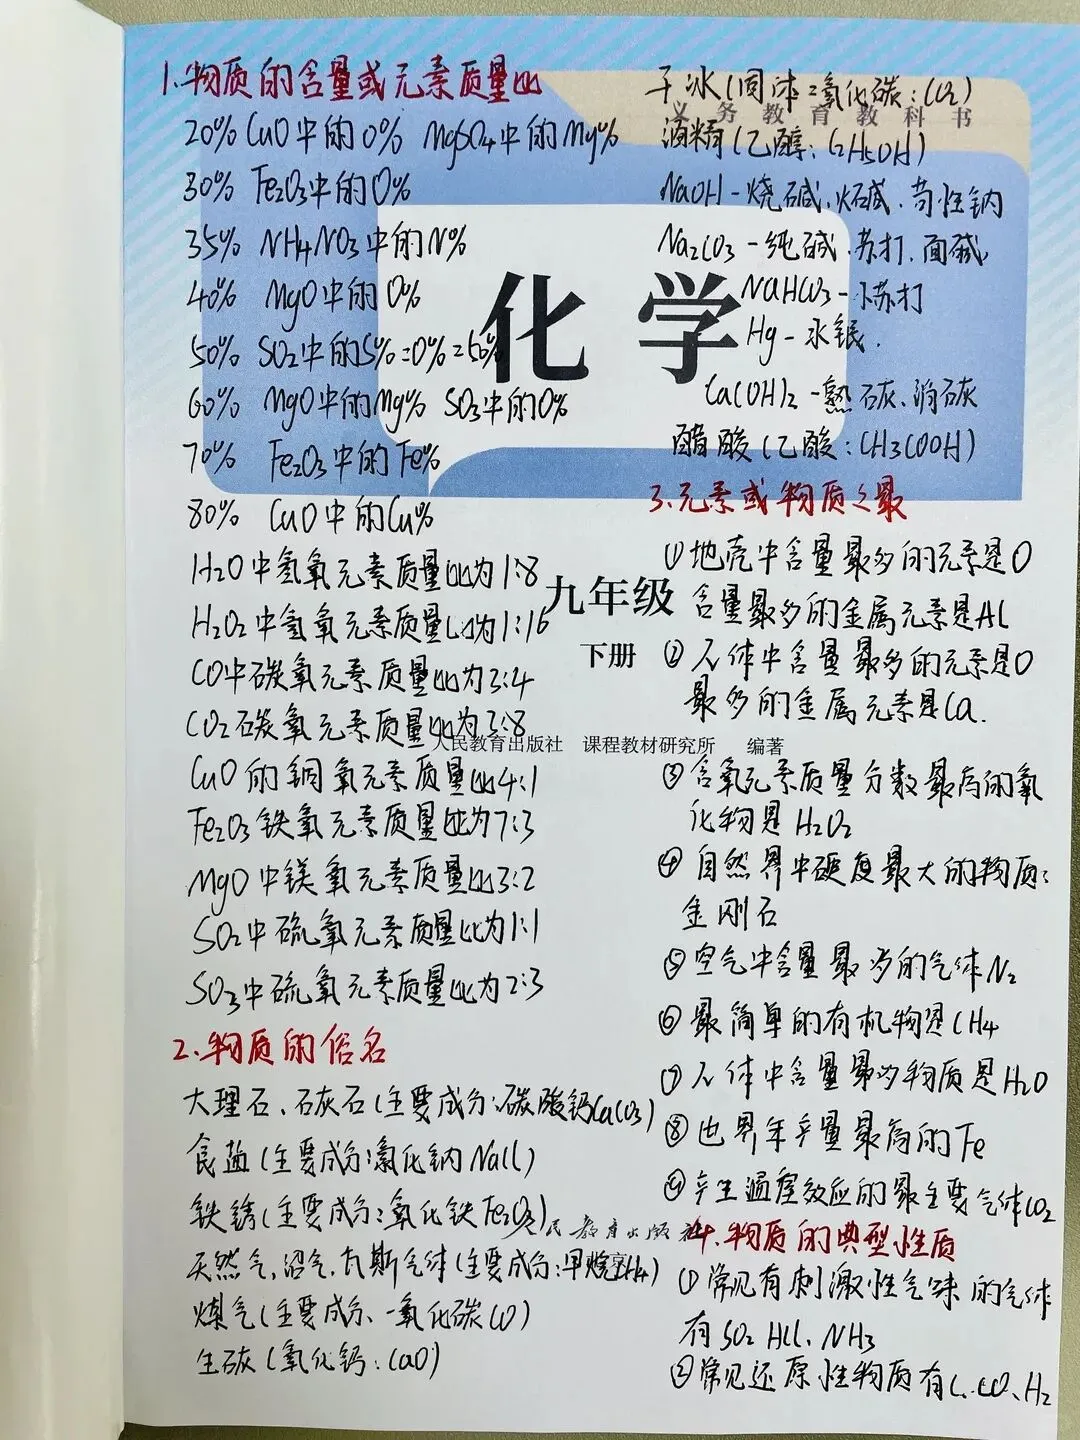 1.物质的含量或元素质量比
20% CuO中的O% MgSO4中的Mg%
30% Fe2O3中的O%
35% NH4NO3中的N%
40% MgO中的O%
50% SO2中的S%=O%=50%
60% MgO中的Mg% SO3中的O%
70% Fe2O3中的Fe%
80% CuO中的Cu%
H2O中氢氧元素质量比为1:8
H2O2中氢氧元素质量比为1:16
CO中碳氧元素质量比为3:4
CO2碳氧元素质量比为3:8
CuO的铜氧元素质量比4:1
Fe2O3铁氧元素质量比为7:3
MgO中镁氧元素质量比3:2
SO2中硫氧元素质量比为1:1
SO3中硫氧元素质量比为2:3
2.物质的俗名
大理石、石灰石(主要成分:碳酸钙CaCO3)
食盐(主要成分:氯化钠NaCl)
铁锈(主要成分:氧化铁Fe2O3)
天然气,沼气,瓦斯气体(主要成分:甲烷CH4)
煤气(主要成分、一氧化碳CO)
生石灰(氧化钙:CaO)
干冰(固体二氧化碳:CO2)
酒精(乙醇:C2H5OH)
NaOH-烧碱、火碱、苛性钠
Na2CO3-纯碱、苏打、面碱
NaHCO3-小苏打
Hg-水银.
Ca(OH)2-熟石灰、消石灰
醋酸(乙酸:CH3COOH)
3.元素或物质之最
①地壳中含量最多的元素是O
含量最多的金属元素是Al
②人体中含量最多的元素是O
最多的金属元素是Ca.
③含氧元素质量分数最高的氧
化物是H2O2
④自然界中硬度最大的物质:
金刚石
⑤空气中含量最多的气体N2
⑥最简单的有机物是CH4
⑦人体中含量最多物质是H2O
⑧世界年产量最高的Fe
⑨产生温室效应的最主要气体CO2
4.物质的典型性质
①常见有刺激性气味的气体
有SO2 HCl、NH3
②常见还原性物质有C、CO、H2
义务教育教科书
化学
九年级
下册
人民教育出版社 课程教材研究所 编著